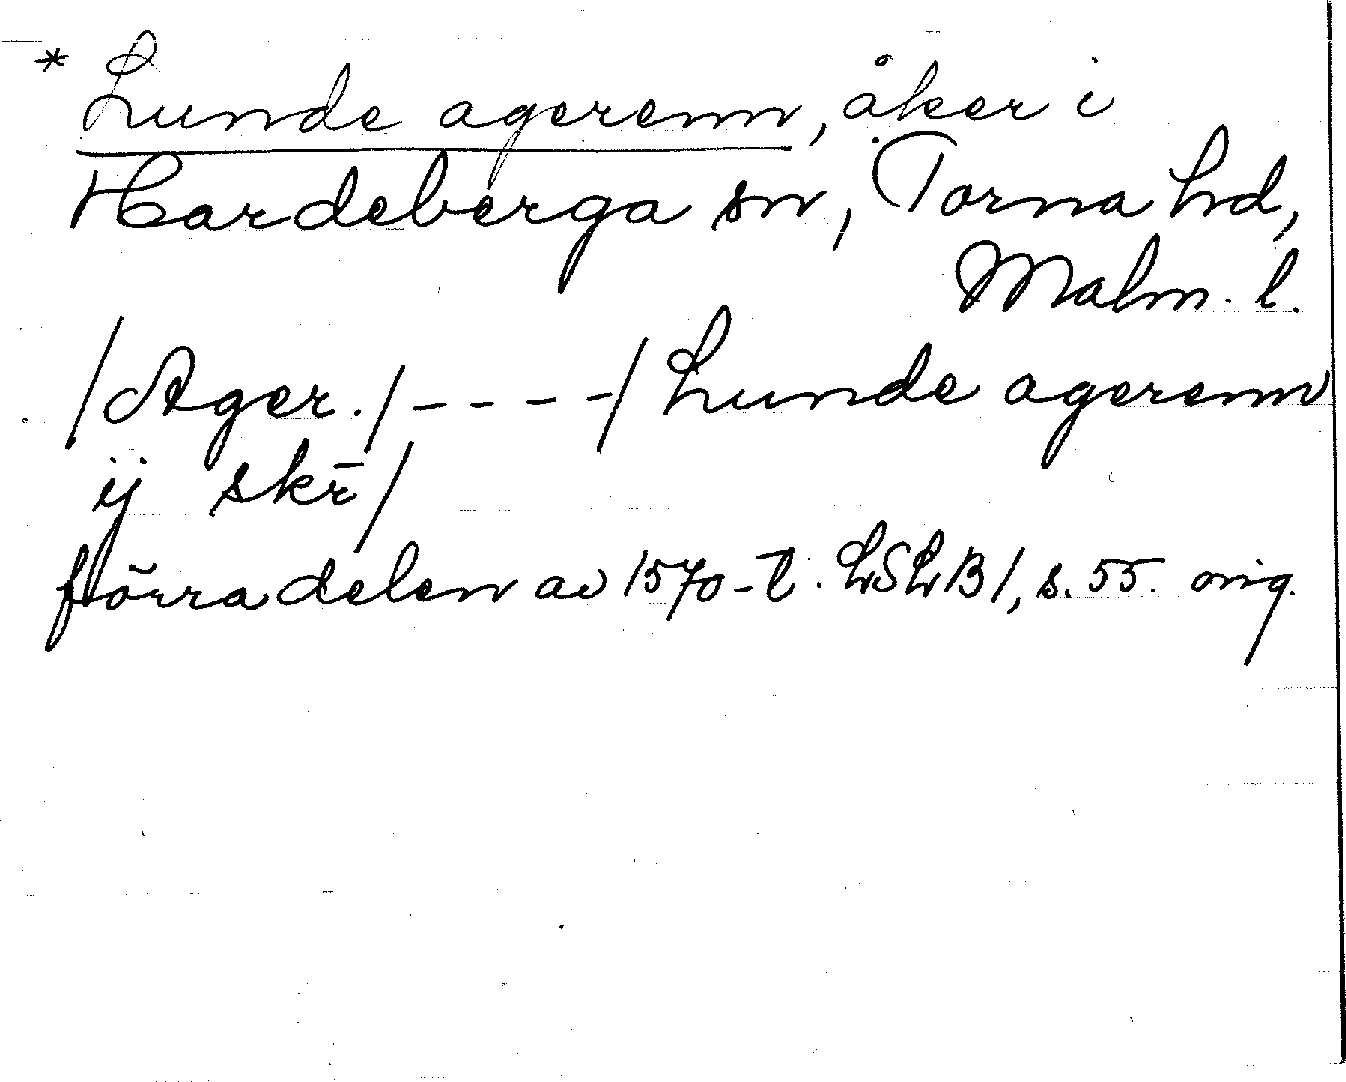 * Lunde agerenn, åker i
Hardeberga sn, Torna hd,
Malm. l.
/Ager./ - - - - / Lunde agerenn
ij skr̄/
förra delen av 1570-t. LSLB 1, s. 55. orig.